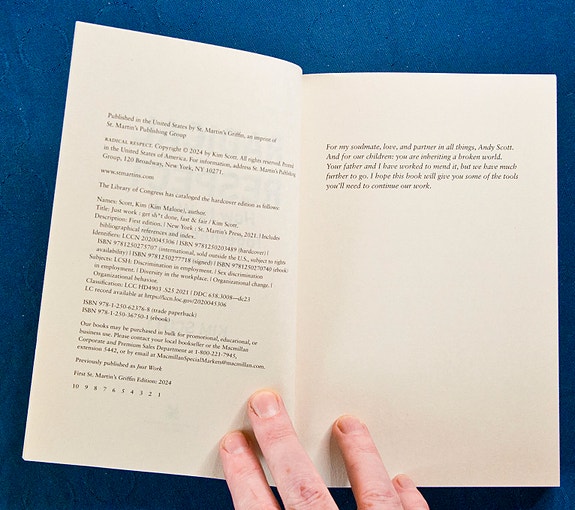 Published in the United States by St. Martin's Griffin, an imprint of
St. Martin's Publishing Group
RADICAL RESPECT. Copyright © 2024 by Kim Scott. All rights reserved. Printed
in the United States of America. For information, address St. Martin's Publishing
Group, 120 Broadway, New York, NY 10271.
www.stmartins.com
The Library of Congress has cataloged the hardcover edition as follows:
Names: Scott, Kim (Kim Malone), author.
Title: Just work : get sh*t done, fast & fair / Kim Scott.
Description: First edition. | New York : St. Martin's Press, 2021. | Includes
bibliographical references and index.
Identifiers: LCCN 2020045306 | ISBN 9781250203489 (hardcover) |
ISBN 9781250275707 (international, sold outside the U.S., subject to rights
availability) | ISBN 9781250277718 (signed) | ISBN 9781250270740 (ebook)
Subjects: LCSH: Discrimination in employment. | Sex discrimination
in employment. | Diversity in the workplace. | Organizational change. |
Organizational behavior.
Classification: LCC HD4903 .S25 2021 | DDC 658.3008—dc23
LC record available at https://lccn.loc.gov/2020045306
ISBN 978-1-250-62376-8 (trade paperback)
ISBN 978-1-250-36750-1 (ebook)
Our books may be purchased in bulk for promotional, educational, or
business use. Please contact your local bookseller or the Macmillan
Corporate and Premium Sales Department at 1-800-221-7945,
extension 5442, or by email at MacmillanSpecialMarkets@macmillan.com.
Previously published as Just Work
First St. Martin's Griffin Edition: 2024
10 9 8 7 6 5 4 3 2 1
For my soulmate, love, and partner in all things, Andy Scott.
And for our children: you are inheriting a broken world.
Your father and I have worked to mend it, but we have much
further to go. I hope this book will give you some of the tools
you'll need to continue our work.